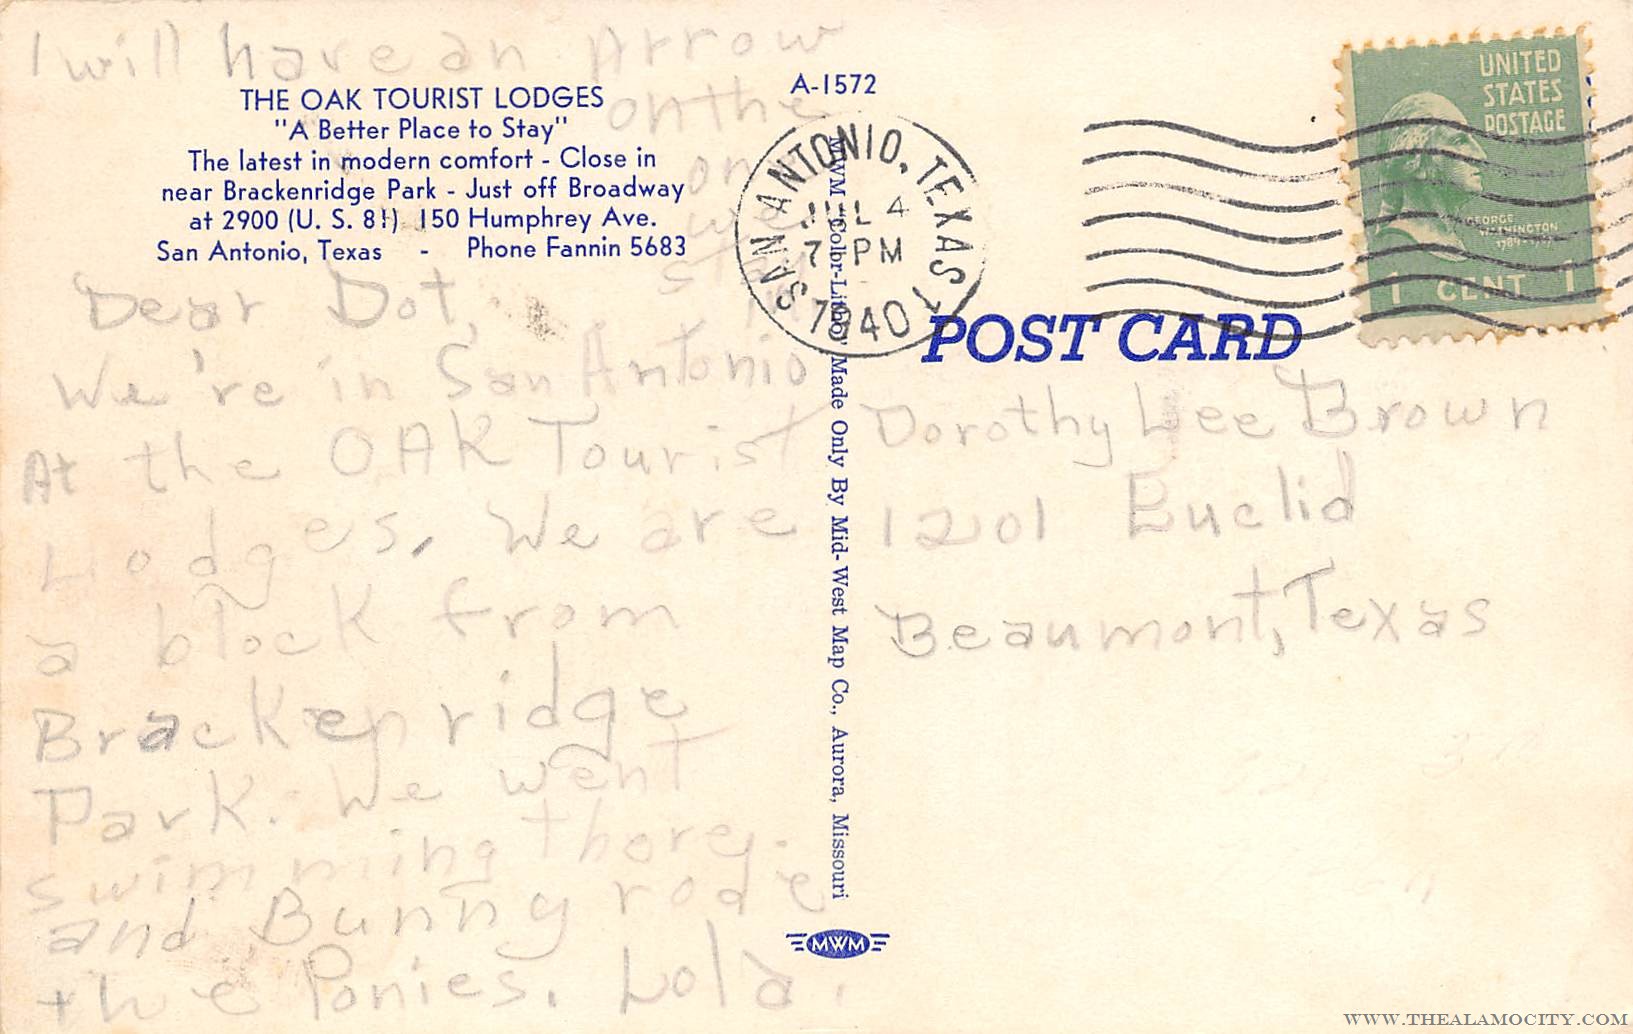 I will have an Arrow
on the
one
we
stay
in
THE OAK TOURIST LODGES
"A Better Place to Stay"
The latest in modern comfort - Close in
near Brackenridge Park - Just off Broadway
at 2900 (U. S. 81) 150 Humphrey Ave.
San Antonio, Texas - Phone Fannin 5683
Dear Dot,
We're in San Antonio
At the OAK Tourist
Lodges. We are
a block from
Brackenridge
Park. We went
swimming thore.
and Bunny rode
the Ponies. Lola.
A-1572
MWM "Color-Litho" Made Only By Mid-West Map Co., Aurora, Missouri
MWM
SAN ANTONIO, TEXAS
JUL 4
7 PM
1940
UNITED
STATES
POSTAGE
GEORGE
WASHINGTON
1 CENT 1
POST CARD
Dorothy Lee Brown
1201 Euclid
Beaumont, Texas
WWW.THEALAMOCITY.COM